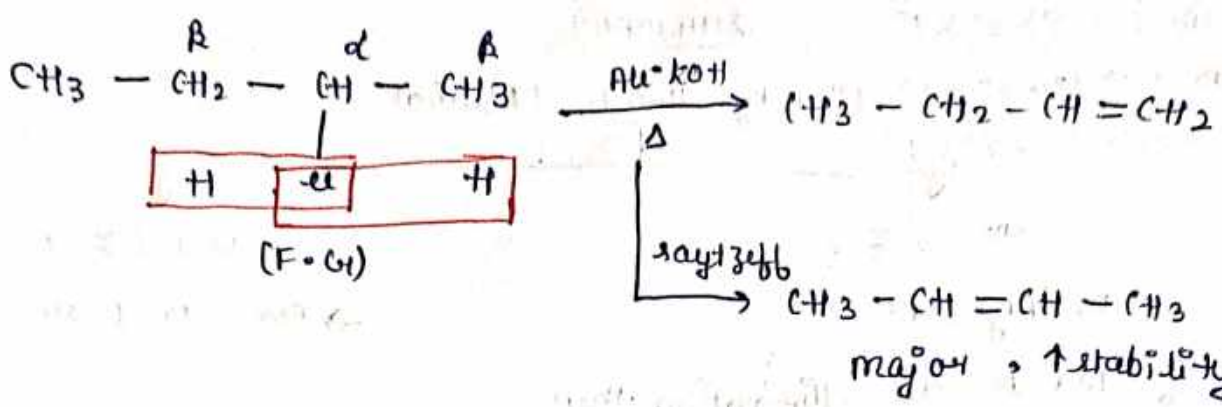 β α β
CH3 — CH2 — CH — CH3 Alc·KOH CH3 - CH2 - CH = CH2
Δ
H Cl H
(F·G)
saytzeff
CH3 - CH = CH - CH3
major , ↑stability